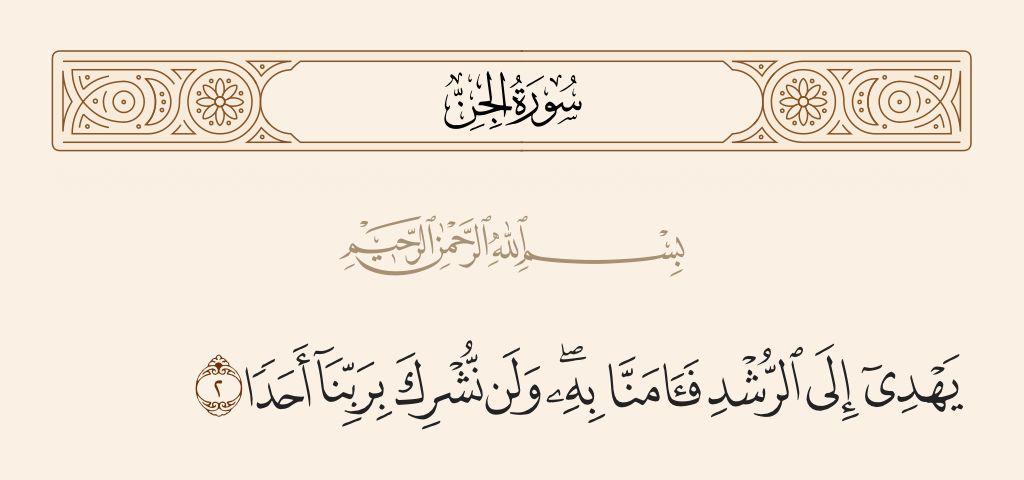 سُورَةُ الجِنِّ
بِسْمِ ٱللَّهِ ٱلرَّحْمَٰنِ ٱلرَّحِيمِ
يَهْدِىٓ إِلَى ٱلرُّشْدِ فَـَٔامَنَّا بِهِۦ ۖ وَلَن نُّشْرِكَ بِرَبِّنَآ أَحَدًا ٢